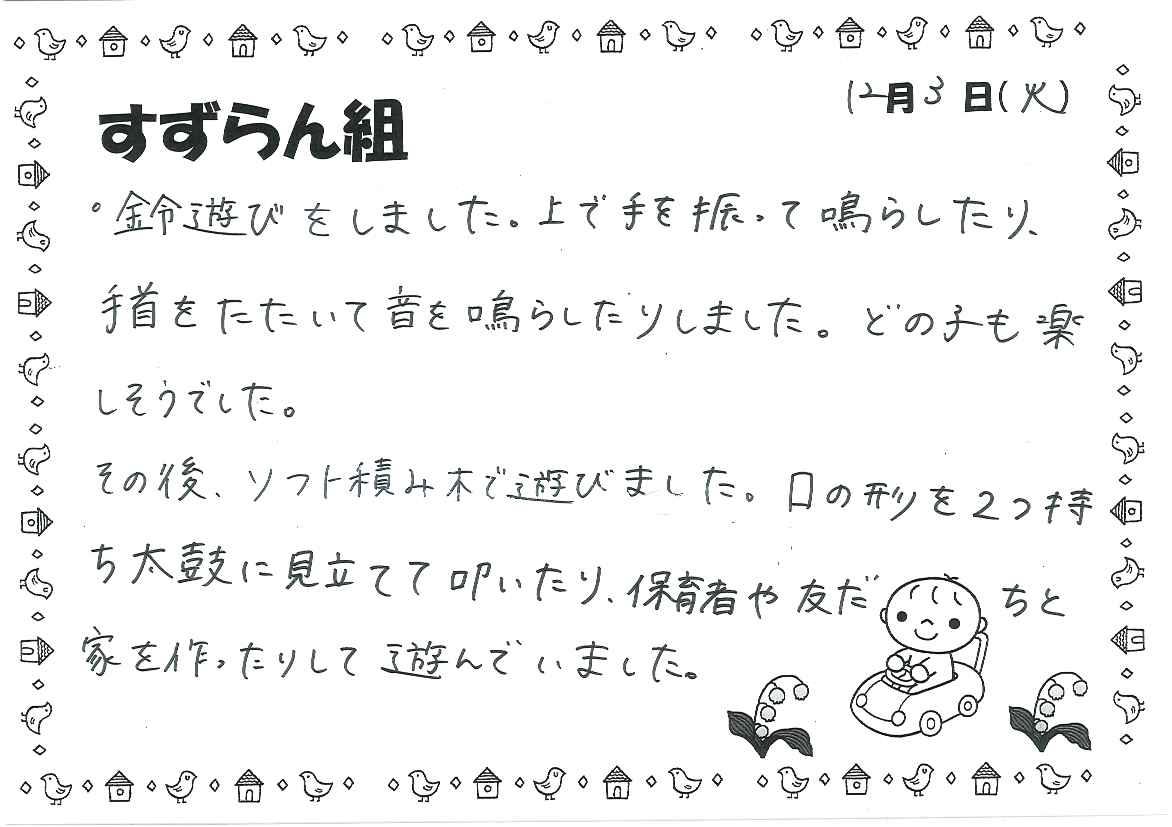 12月3日(火)
すずらん組
。鈴遊びをしました。上で手を振って鳴らしたり、
手首をたたいて音を鳴らしたりしました。どの子も楽
しそうでした。
その後、ソフト積み木で遊びました。口の形を2つ持
ち太鼓に見立てて叩いたり、保育者や友だちと
家を作ったりして遊んでいました。